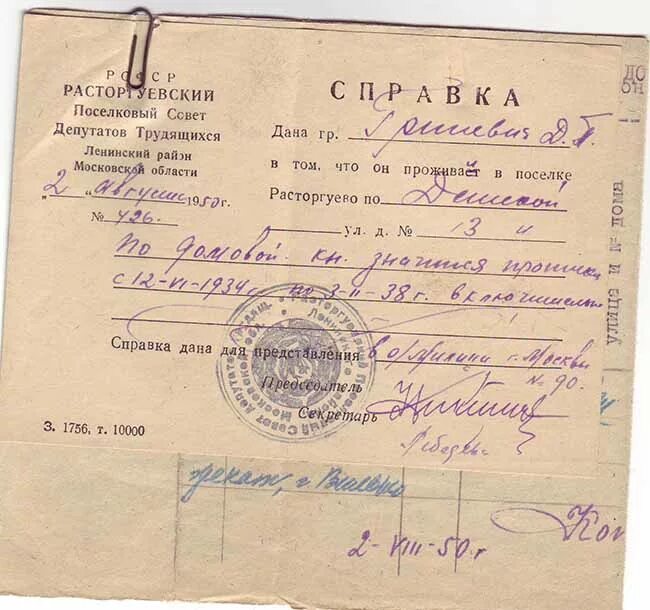 РСФСР
РАСТОРГУЕВСКИЙ
Поселковый Совет
Депутатов Трудящихся
Ленинский район
Московской области
„2" августа 1950г.
№ 426.
СПРАВКА
Дана гр. Гриневич Д.П.
в том, что он проживает в поселке
Расторгуево по Детской
ул. д. № 13
По домовой кн. значится
с 12-VI-1934г. по 3-II-38г. включительно
Справка дана для представления в о/милиции г. Москвы
№ 90.
Председатель
Секретарь
Лебедева
З. 1756, т. 10000
улица и № дома
г. Вильно
2-VIII-50г